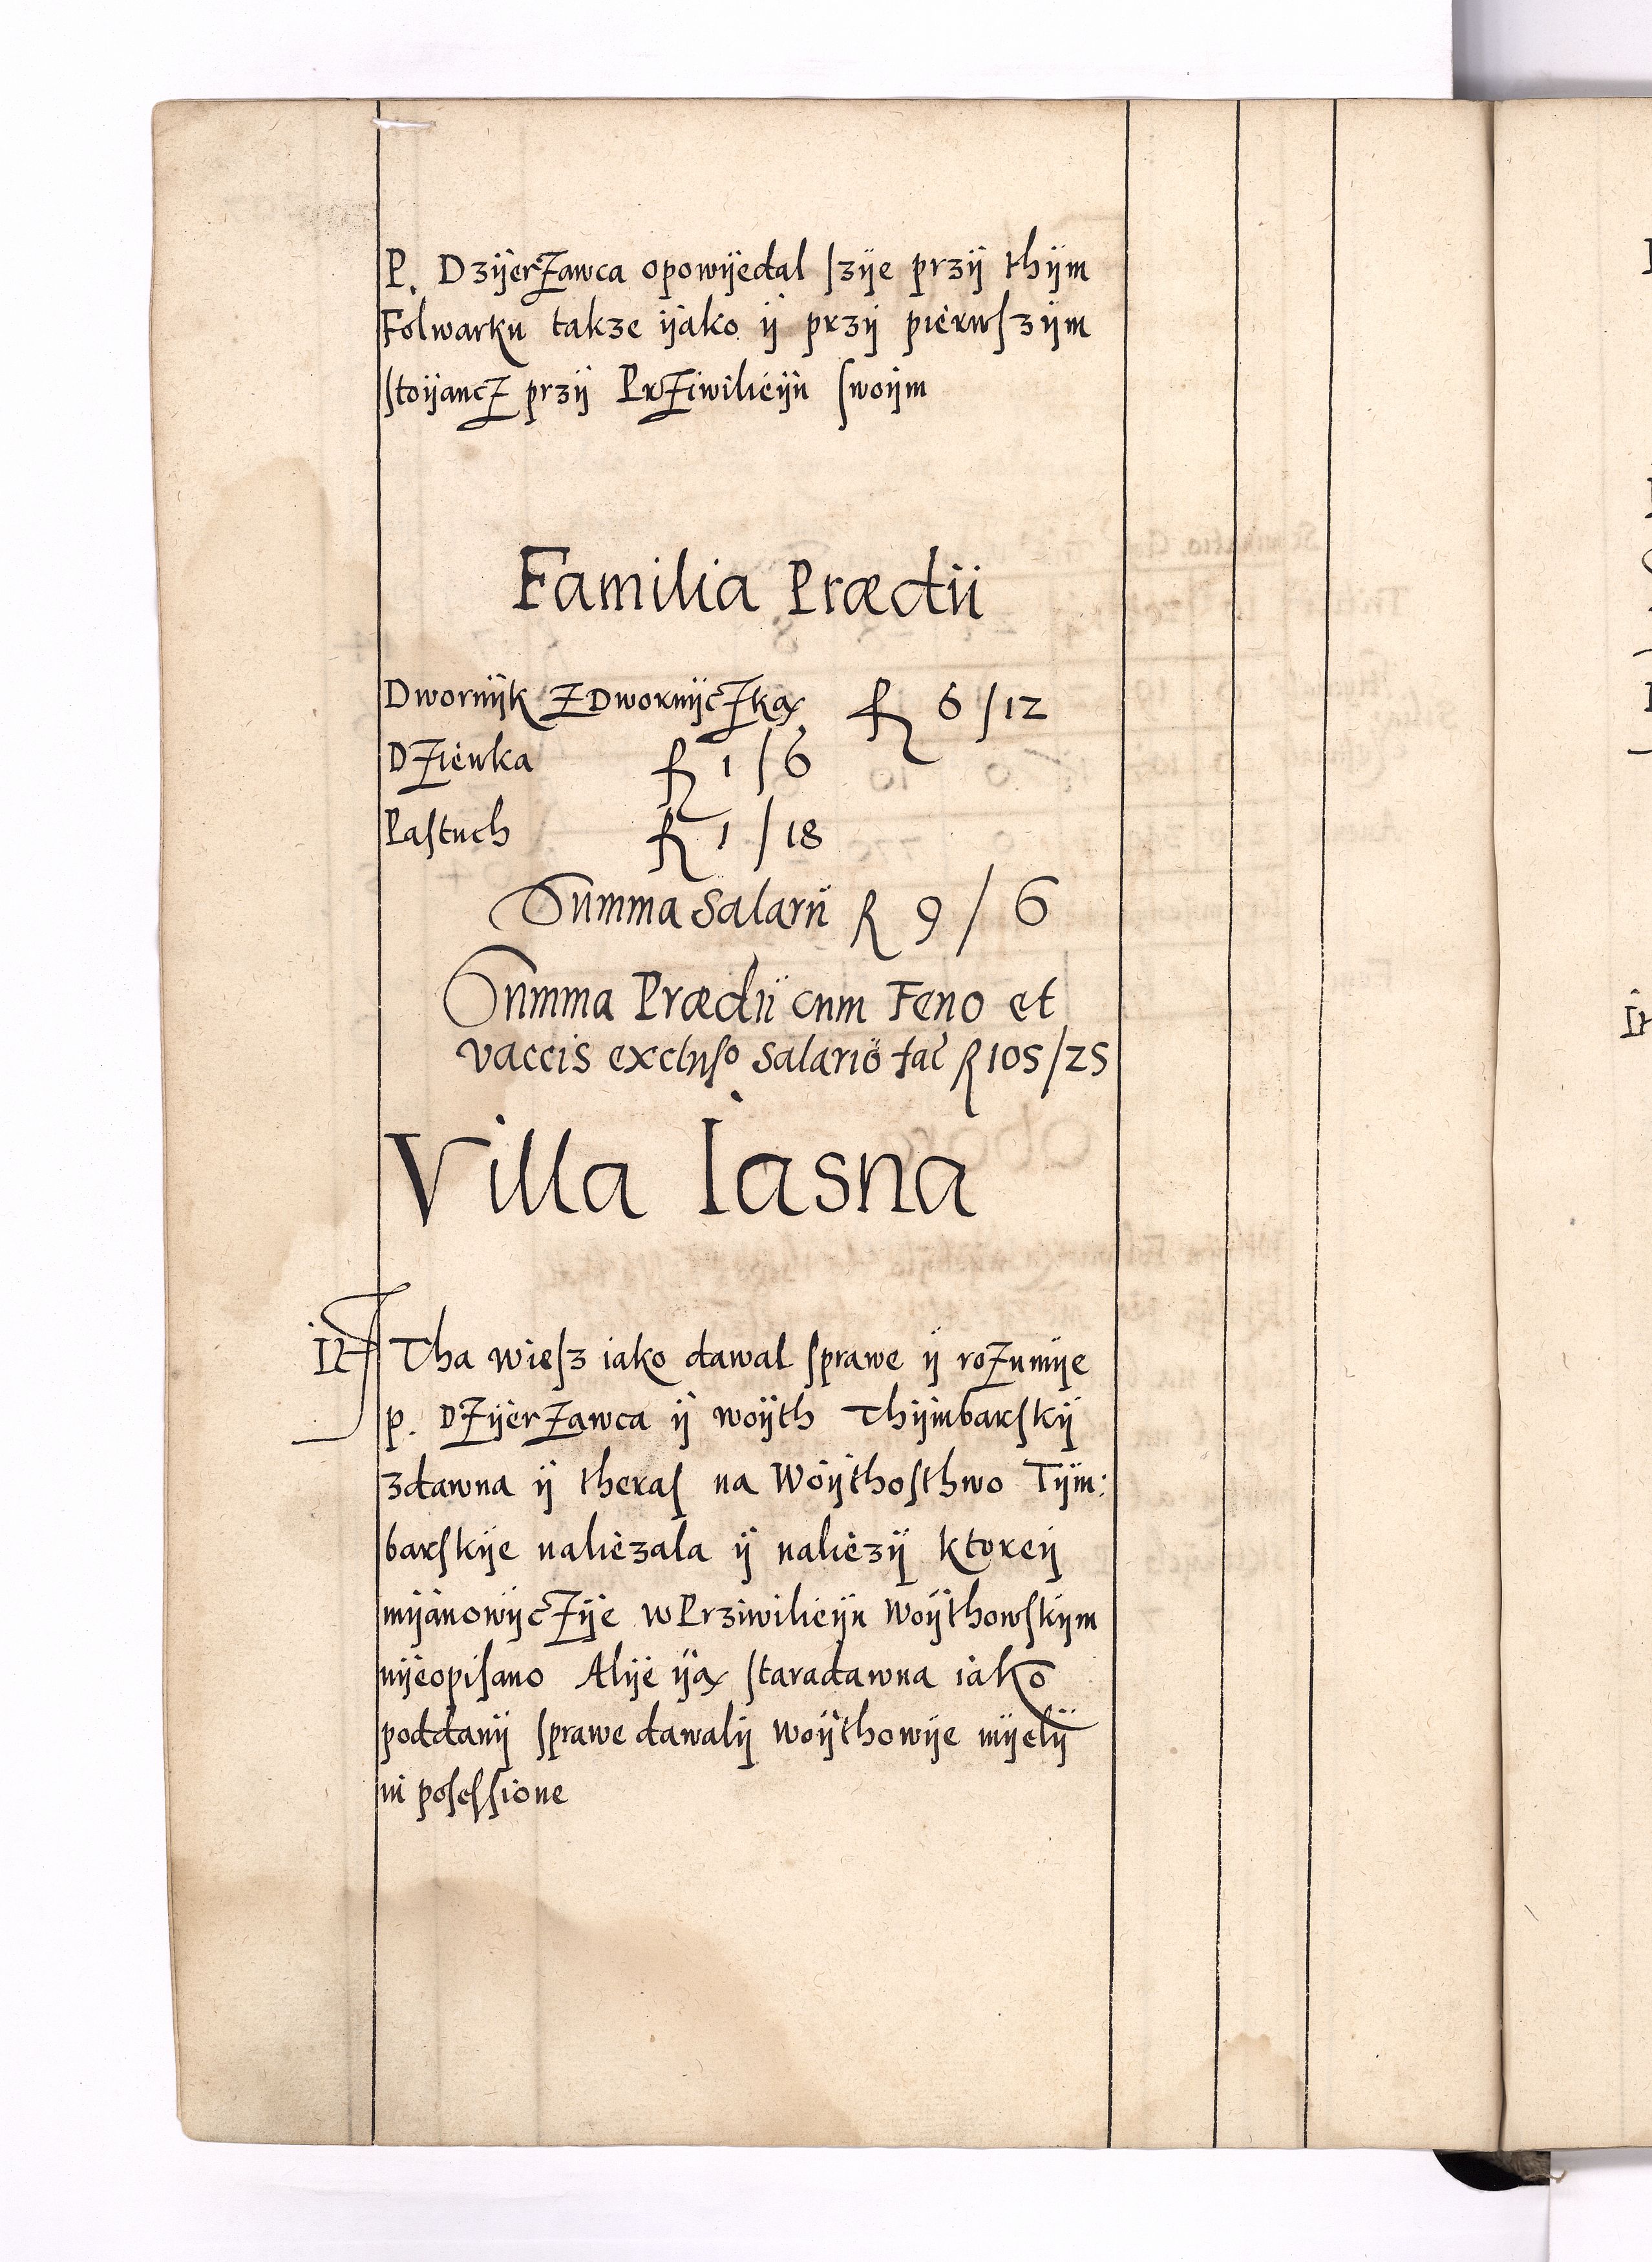 P. Dzÿerzawca opowÿedal ſzÿe przÿ thÿm
Folwarku takze ÿako ÿ przÿ pierwſzÿm
ſtoÿancz przÿ Prziwilieÿu ſwoÿm
Familia Prædii
Dwornÿk z Dwornÿczką ꝭ 6/12
Dziewka ꝭ 1/6
Paſtuch ꝭ 1/18
Summa Salarii ꝭ 9/6
Summa Prædii cum Feno et
vaccis excluſo Salario fac ꝭ 105/25
Villa Iasna
It Tha wieſz iako dawal ſprawe ÿ rozumÿe
p. Dzÿerzawca ÿ woÿth Thÿmbarſkÿ
zdawna ÿ theraſ na Woÿthoſthwo Tÿm:
barſkÿe naliezala ÿ naliezÿ ktoreÿ
mÿanowÿczÿe w Prziwilieÿu Woÿthowſkÿm
nÿeopiſano Alÿe ÿą ſtaradawna iako
poddanÿ ſprawe dawalÿ woÿthowÿe mÿelÿ
in poſeſſione